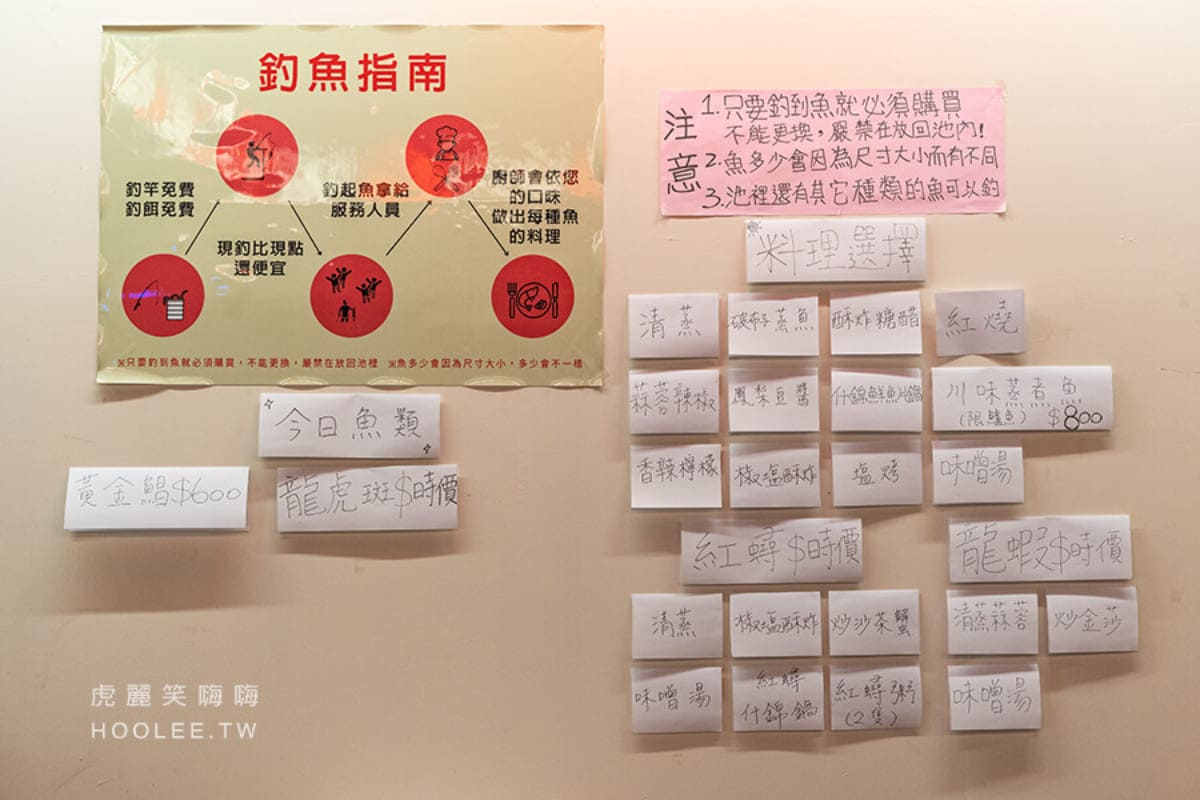 釣魚指南
釣竿免費
釣餌免費
現釣比現點
還便宜
釣起魚拿給
服務人員
廚師會依您
的口味
做出每種魚
的料理
※只要釣到魚就必須購買，不能更換，嚴禁在放回池裡 ※魚多少會因為尺寸大小，多少會不一樣
今日魚類
黃金鯧$600
龍虎斑$時價
注意
1. 只要釣到魚就必須購買
不能更換，嚴禁在放回池內!
2. 魚多少會因為尺寸大小而有不同
3. 池裡還有其它種類的魚可以釣
料理選擇
清蒸
破布子蒸魚
酥炸糖醋
紅燒
蒜蓉辣椒
鳳梨豆醬
什錦鮮魚鍋
川味蒸煮魚
(限鱸魚) $800
香辣檸檬
椒塩酥炸
塩烤
味噌湯
紅蟳$時價
清蒸
椒塩酥炸
炒沙茶蟹
味噌湯
紅蟳
什錦鍋
紅蟳粥
(2隻)
龍蝦$時價
清蒸蒜蓉
炒金莎
味噌湯
虎麗笑嗨嗨
HOOLEE.TW